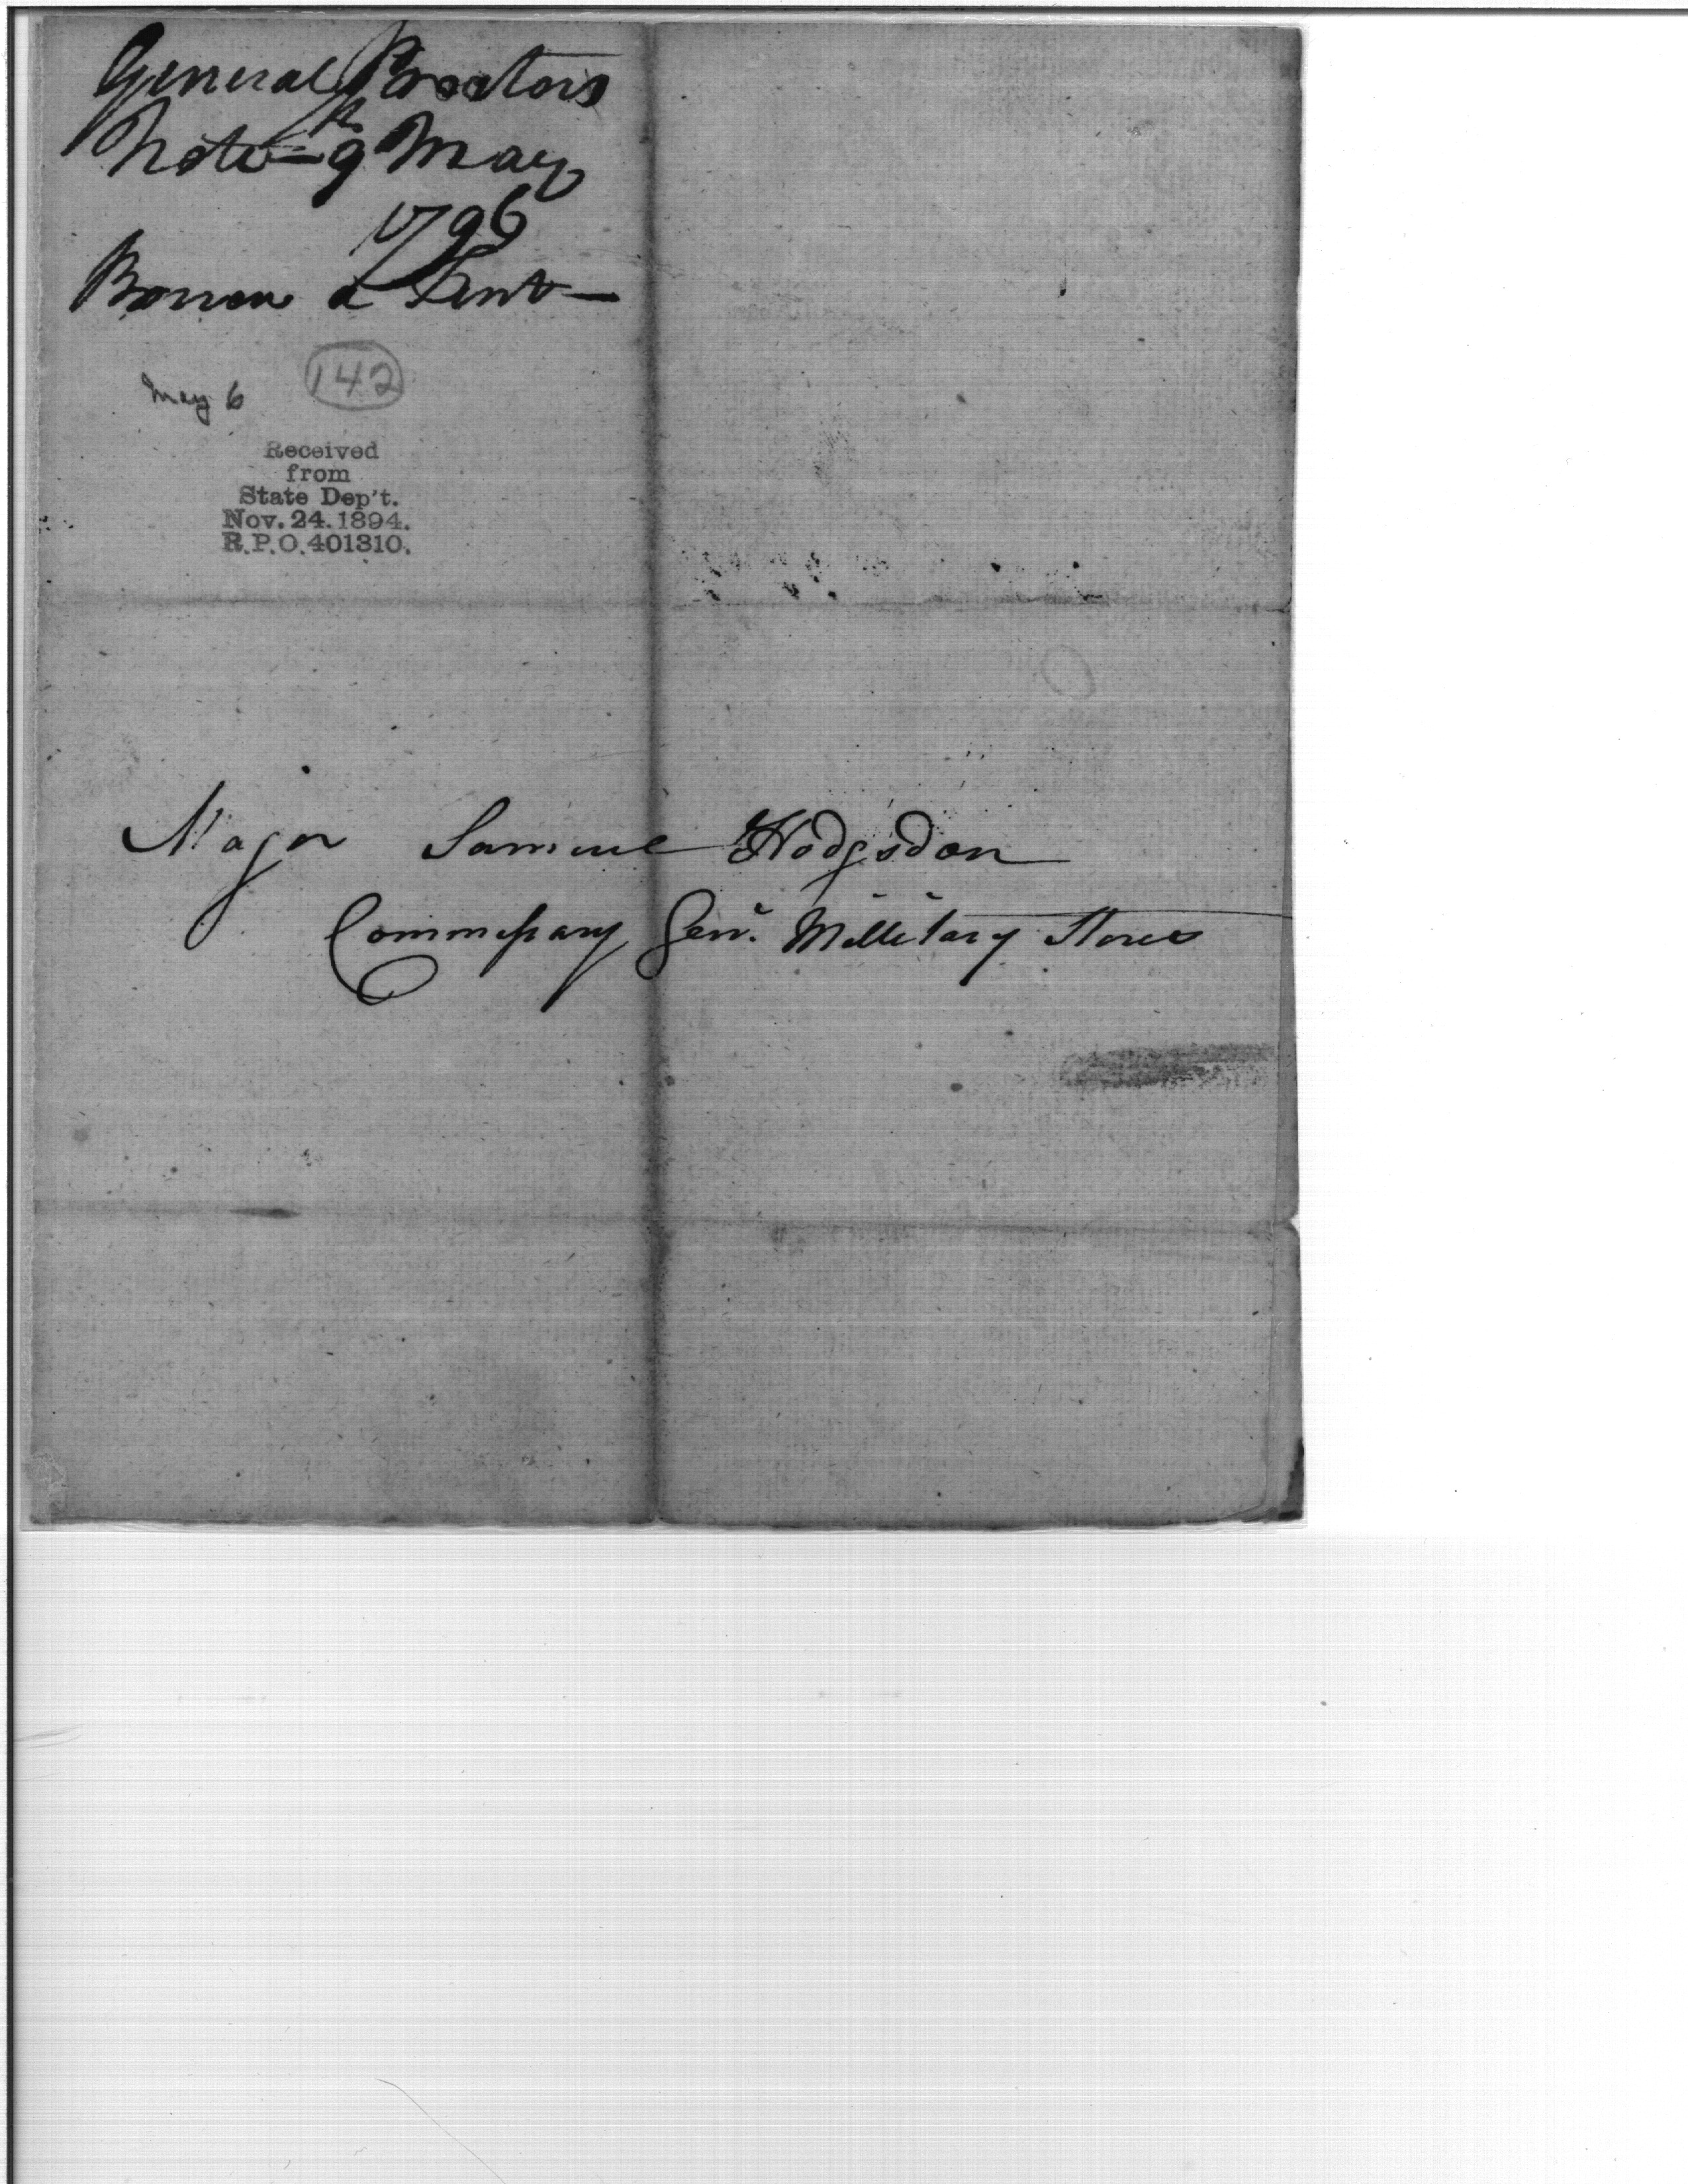 General Proctors
Note – 9th May
1796
Borrow a Tent –
May 6
142
Received
from
State Dep't.
Nov. 24. 1894.
R.P.O. 401310.
Major Samuel Hodgsdon
Commissary Genl. Millitary Stores